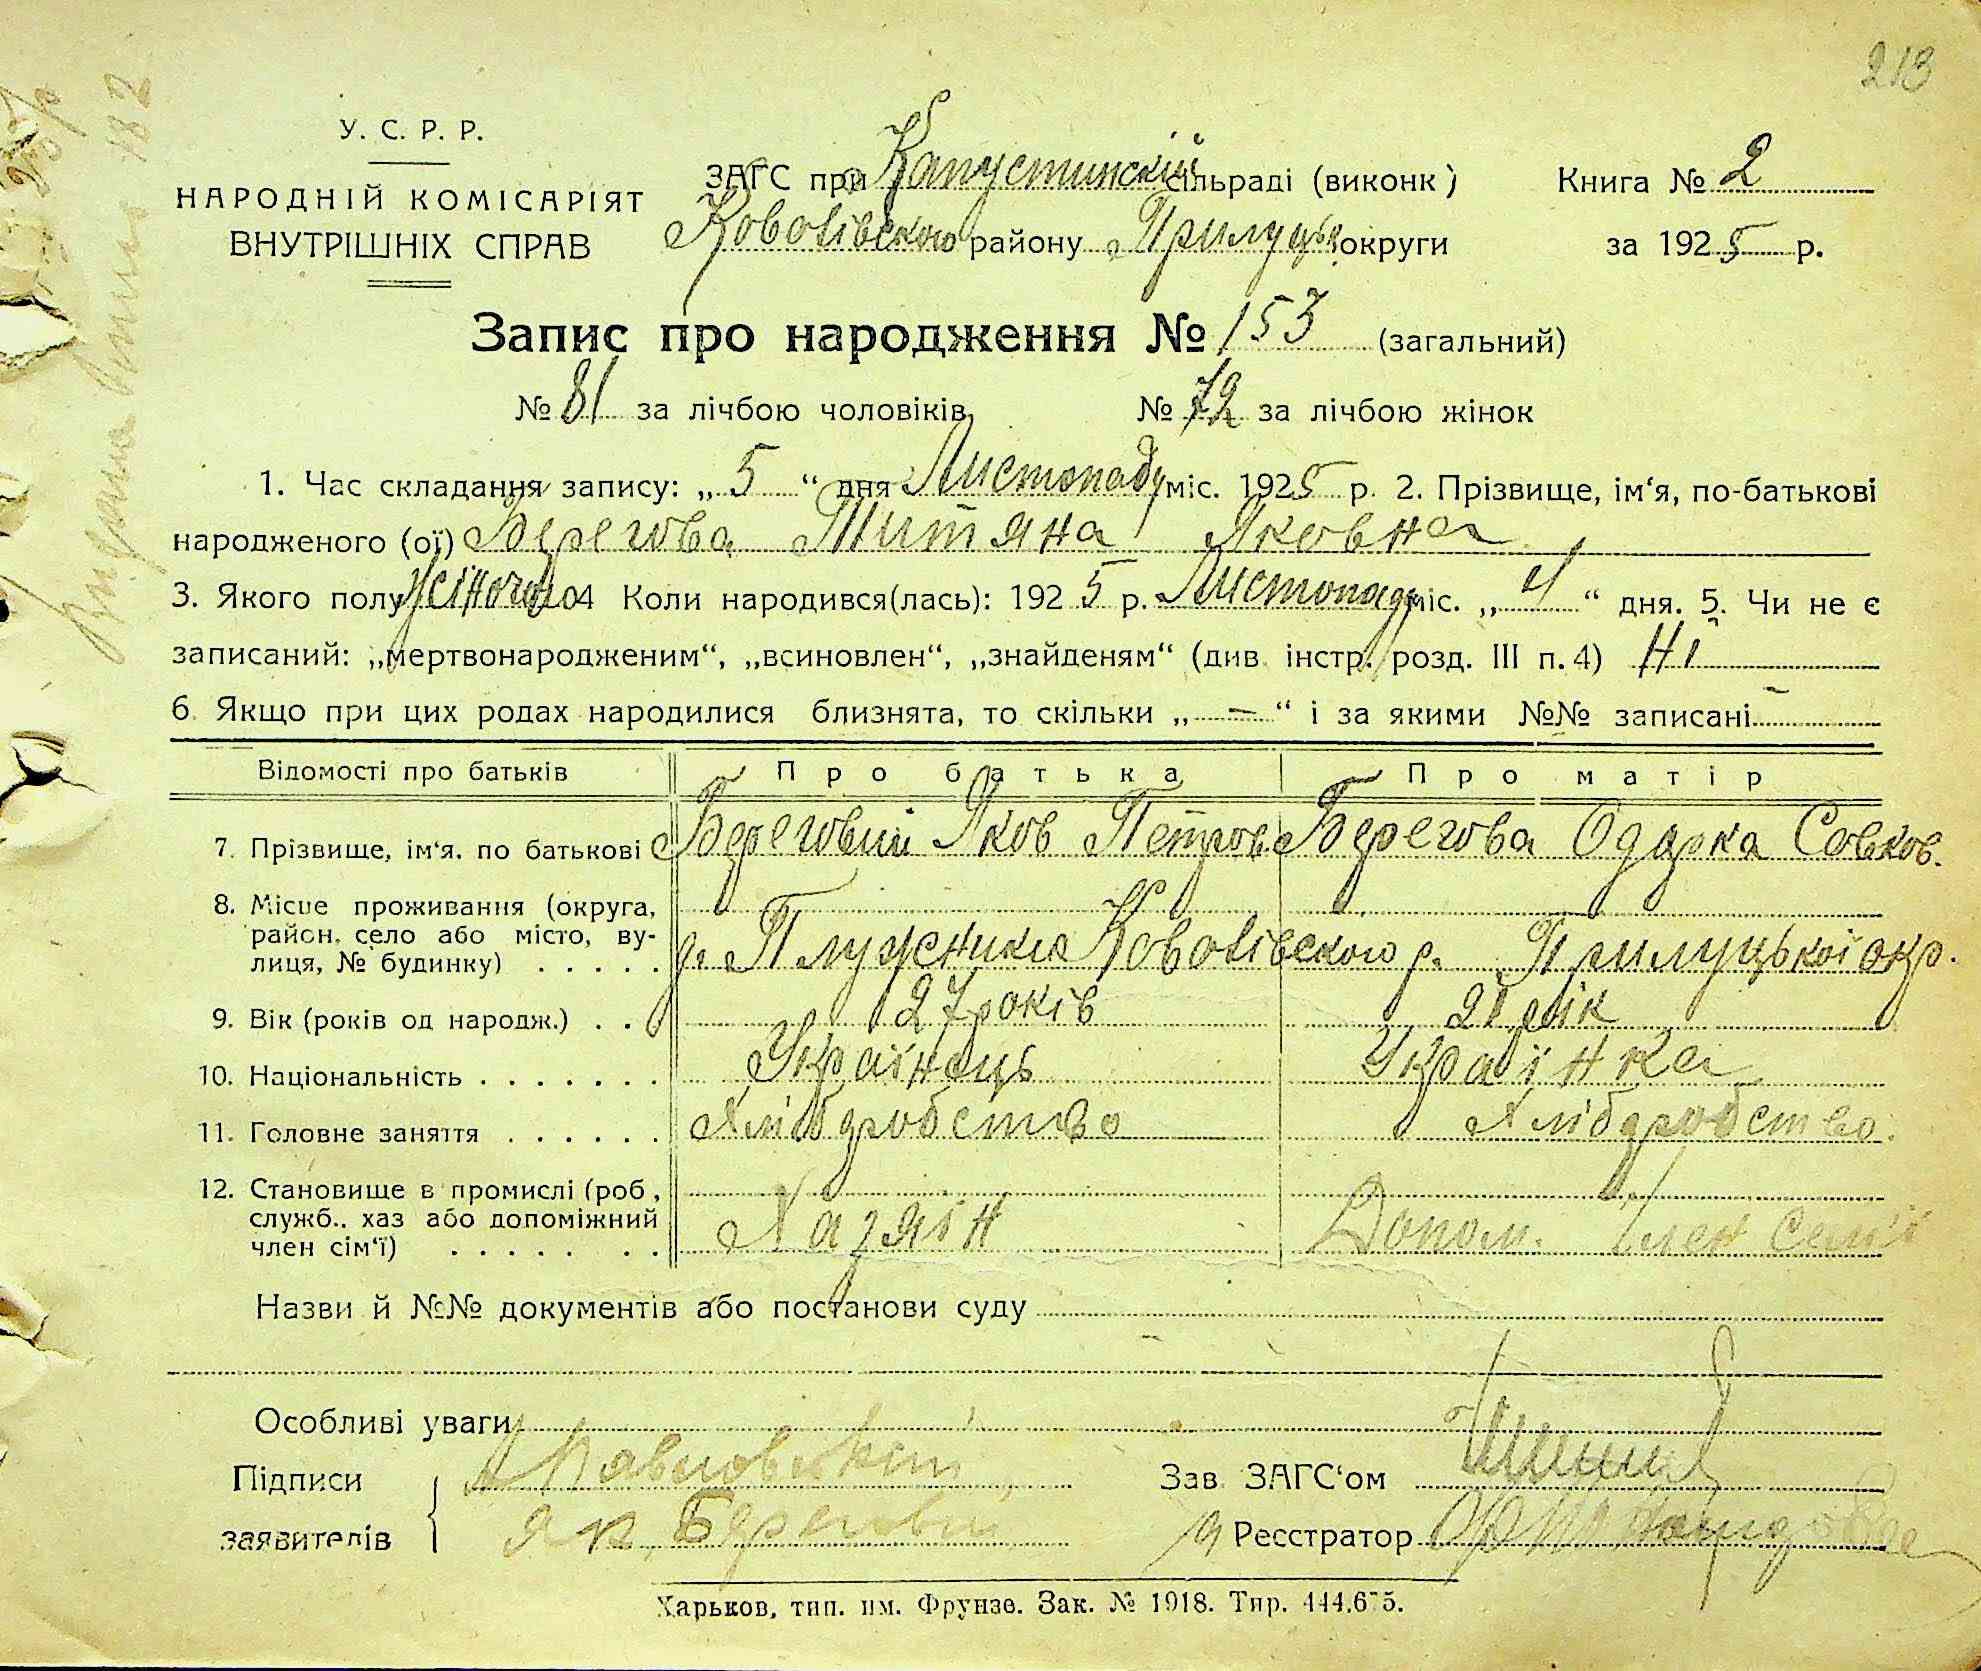 213
У. С. Р. Р.
НАРОДНІЙ КОМІСАРІЯТ
ВНУТРІШНІХ СПРАВ
ЗАГС при Капустинскій сільраді (виконк)
району Прилуцьк округи
Книга № 2
за 1925 р.
Запис про народження № 153 (загальний)
№ 81 за лічбою чоловіків № 72 за лічбою жінок
1. Час складання запису: „ 5 “ дня Листопаду міс. 1925 р. 2. Прізвище, ім‘я, по-батькові
народженого (ої) Берегова Титяна Яковна
3. Якого полу жіночого 4 Коли народився(лась): 1925 р. Листопаду міс. „ 4 “ дня. 5. Чи не є
записаний: „мертвонародженим“, „всиновлен“, „знайденям“ (див. інстр. розд. III п. 4) Ні
6. Якщо при цих родах народилися близнята, то скільки „ — “ і за якими №№ записані —
Відомості про батьків Про батька Про матір
7. Прізвище, ім‘я. по батькові Береговий Яков Петров. Берегова Одарка Савков.
8. Місце проживання (округа,
район, село або місто, ву-
лиця, № будинку) . . . . . Прилуцької окр.
9. Вік (років од народж.) . . 27 років 21 рік
10. Національність . . . . . . . Українець Українка
11. Головне заняття . . . . . . Хліборобство Хліборобство.
12. Становище в промислі (роб,
служб., хаз або допоміжний
член сім‘ї) . . . . . . . Хазяїн Допом. член семїї
Назви й №№ документів або постанови суду
Особливі уваги
Підписи
заявителів
Як. Береговий
Зав. ЗАГС‘ом
Реєстратор
Харьков, тип. им. Фрунзе. Зак. № 1918. Тир. 444.675.